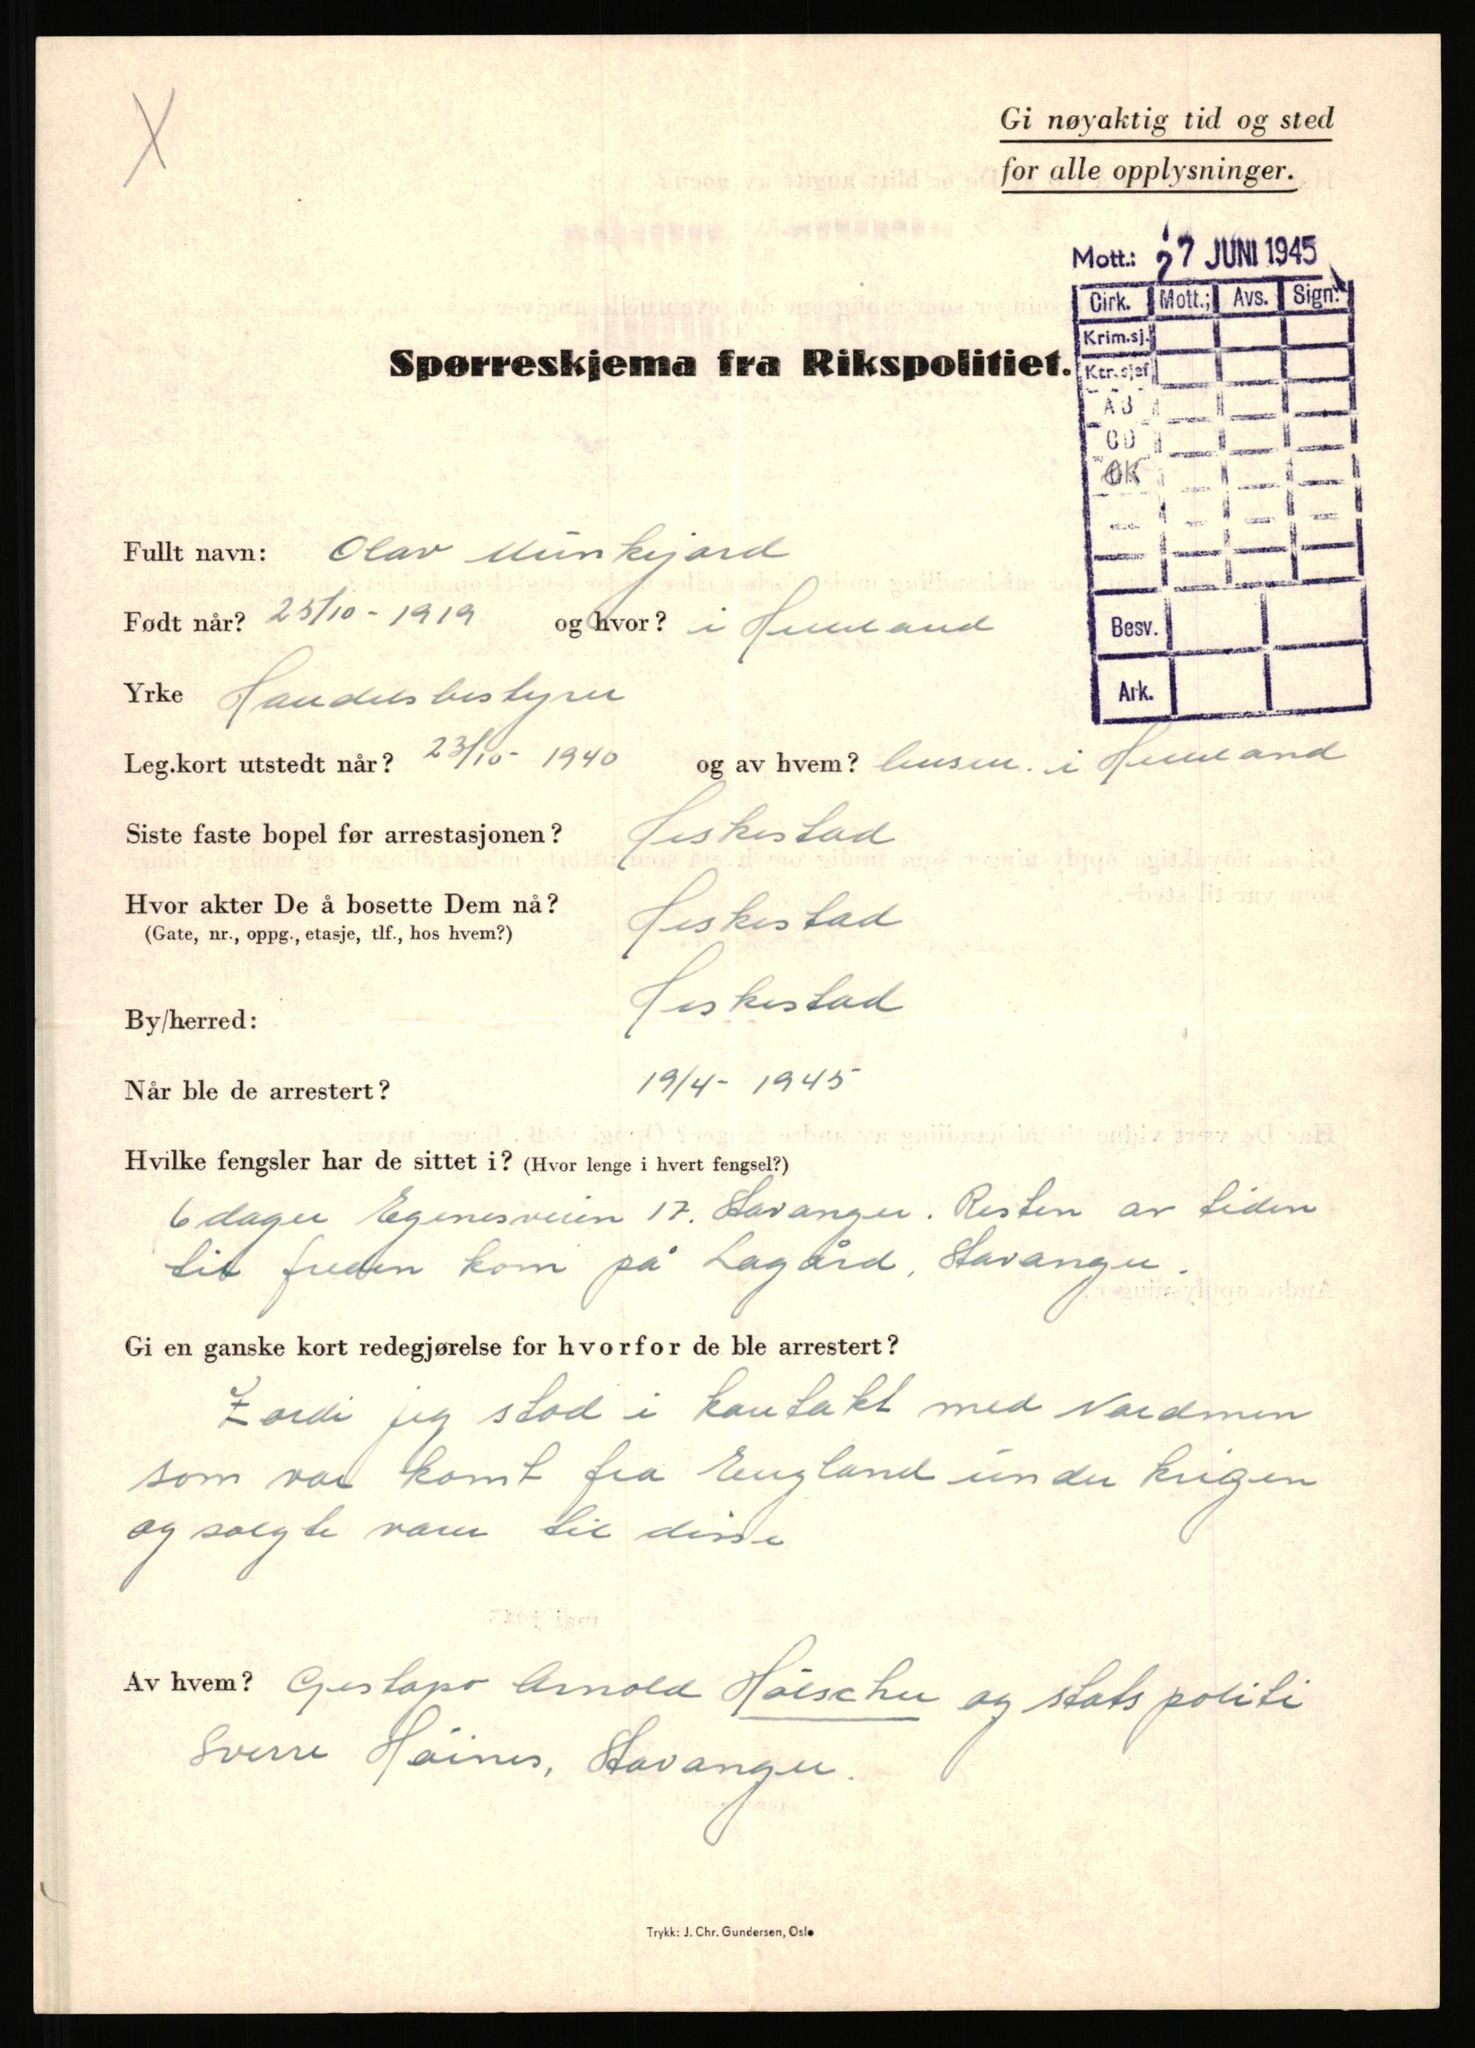 Gi nøyaktig tid og sted
for alle opplysninger.
Mott.: 27 JUNI 1945
Cirk. Mott.; Avs. Sign:
Krim.sj.
Ktr.sjef
AB
CD
ØK
Besv.
Ark.
Spørreskjema fra Rikspolitiet.
Fullt navn: Olav Munkejord
Født når? 25/10 - 1919 og hvor? i Helleland
Yrke Handelsbestyrer
Leg.kort utstedt når? 23/10 - 1940 og av hvem? lensm. i Helleland
Siste faste bopel før arrestasjonen? Heskestad
Hvor akter De å bosette Dem nå? Heskestad
(Gate, nr., oppg., etasje, tlf., hos hvem?)
By/herred: Heskestad
Når ble de arrestert? 19/4 - 1945
Hvilke fengsler har de sittet i? (Hvor lenge i hvert fengsel?)
6 dager Egenesveien 17. Stavanger. Resten av tiden
til freden kom på Lagård, Stavanger.
Gi en ganske kort redegjørelse for hvorfor de ble arrestert?
Fordi jeg stod i kontakt med Nordmen
som var komt fra England under krigen
og solgte varer til disse
Av hvem? Gestapo Arnold Hölscher og statspoliti
Sverre Høines, Stavanger.
Trykk: J. Chr. Gundersen, Oslo